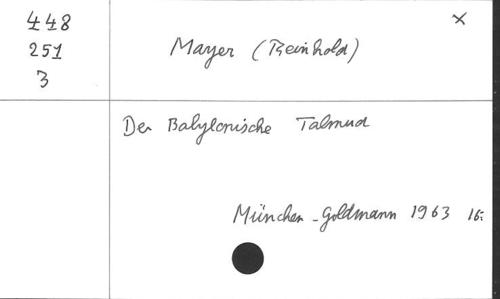 448
251
3
x
Mayer (Reinhold)
Der Babylonische Talmud
München - Goldmann 1963 16.